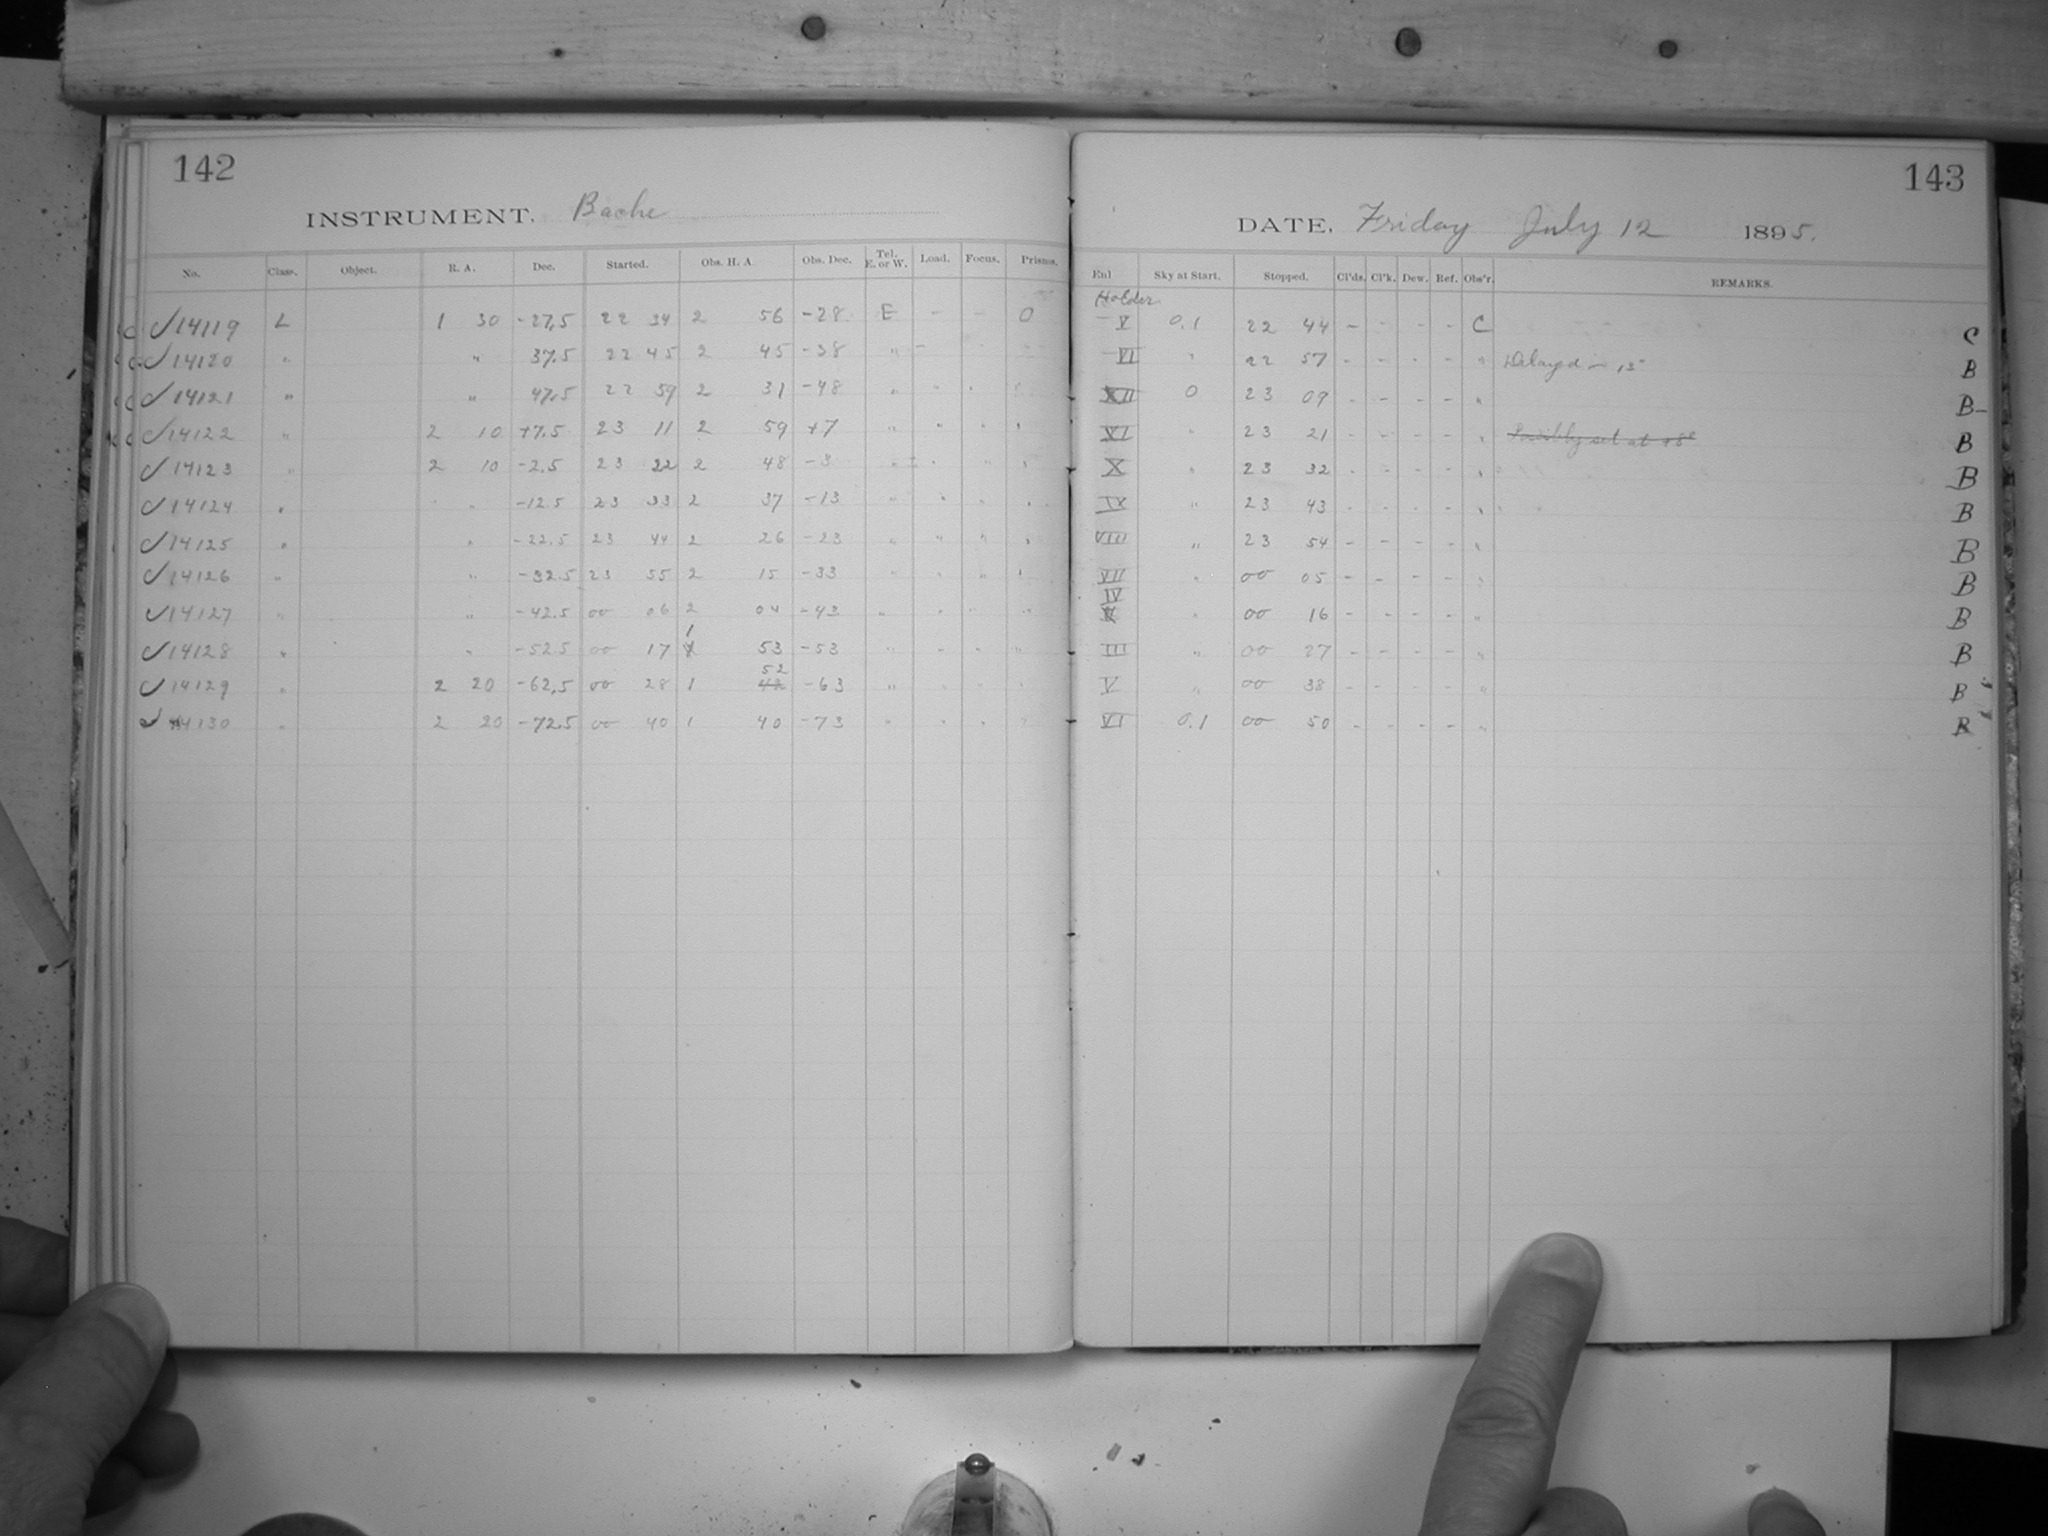 142
INSTRUMENT. Bache
No. Class. Object. R. A. Dec. Started. Obs. H. A. Obs. Dec. Tel. E. or W. Load. Focus. Prisms.
14119 L 1 30 -27.5 22 34 2 56 -28 E - - 0
14120 " " 37.5 22 45 2 45 -38 "
14121 " " 47.5 22 59 2 31 -48 " " "
14122 " 2 10 +7.5 23 11 2 59 +7 " " " "
14123 " 2 10 -2.5 23 22 2 48 -3 " " "
14124 " " -12.5 23 33 2 37 -13 " " " "
14125 " " -22.5 23 44 2 26 -23 " " " "
14126 " " -32.5 23 55 2 15 -33 " " " "
14127 " " -42.5 00 06 2 04 -43 " " " "
14128 " " -52.5 00 17 1 53 -53 " " " "
14129 " 2 20 -62.5 00 28 1 52 42 -63 " " " "
14130 " 2 20 -72.5 00 40 1 40 -73 " " " "
143
DATE. Friday July 12 1895.
Sky at Start. Stopped. Cl'ds. Cl'k. Dew. Ref. Obs'r. REMARKS.
Holder
V 0.1 22 44 - - - - C C
VI " 22 57 - - - - " Delayed B
XII 0 23 09 - - - - " B-
XI " 23 21 - - - - " Possibly set at +8° B
X " 23 32 - - - - " B
IX " 23 43 - - - - " B
VIII " 23 54 - - - - " B
VII " 00 05 - - - - " B
IV " 00 16 - - - - " B
III " 00 27 - - - - " B
V " 00 38 - - - - " B
VI 0.1 00 50 - - - - " B